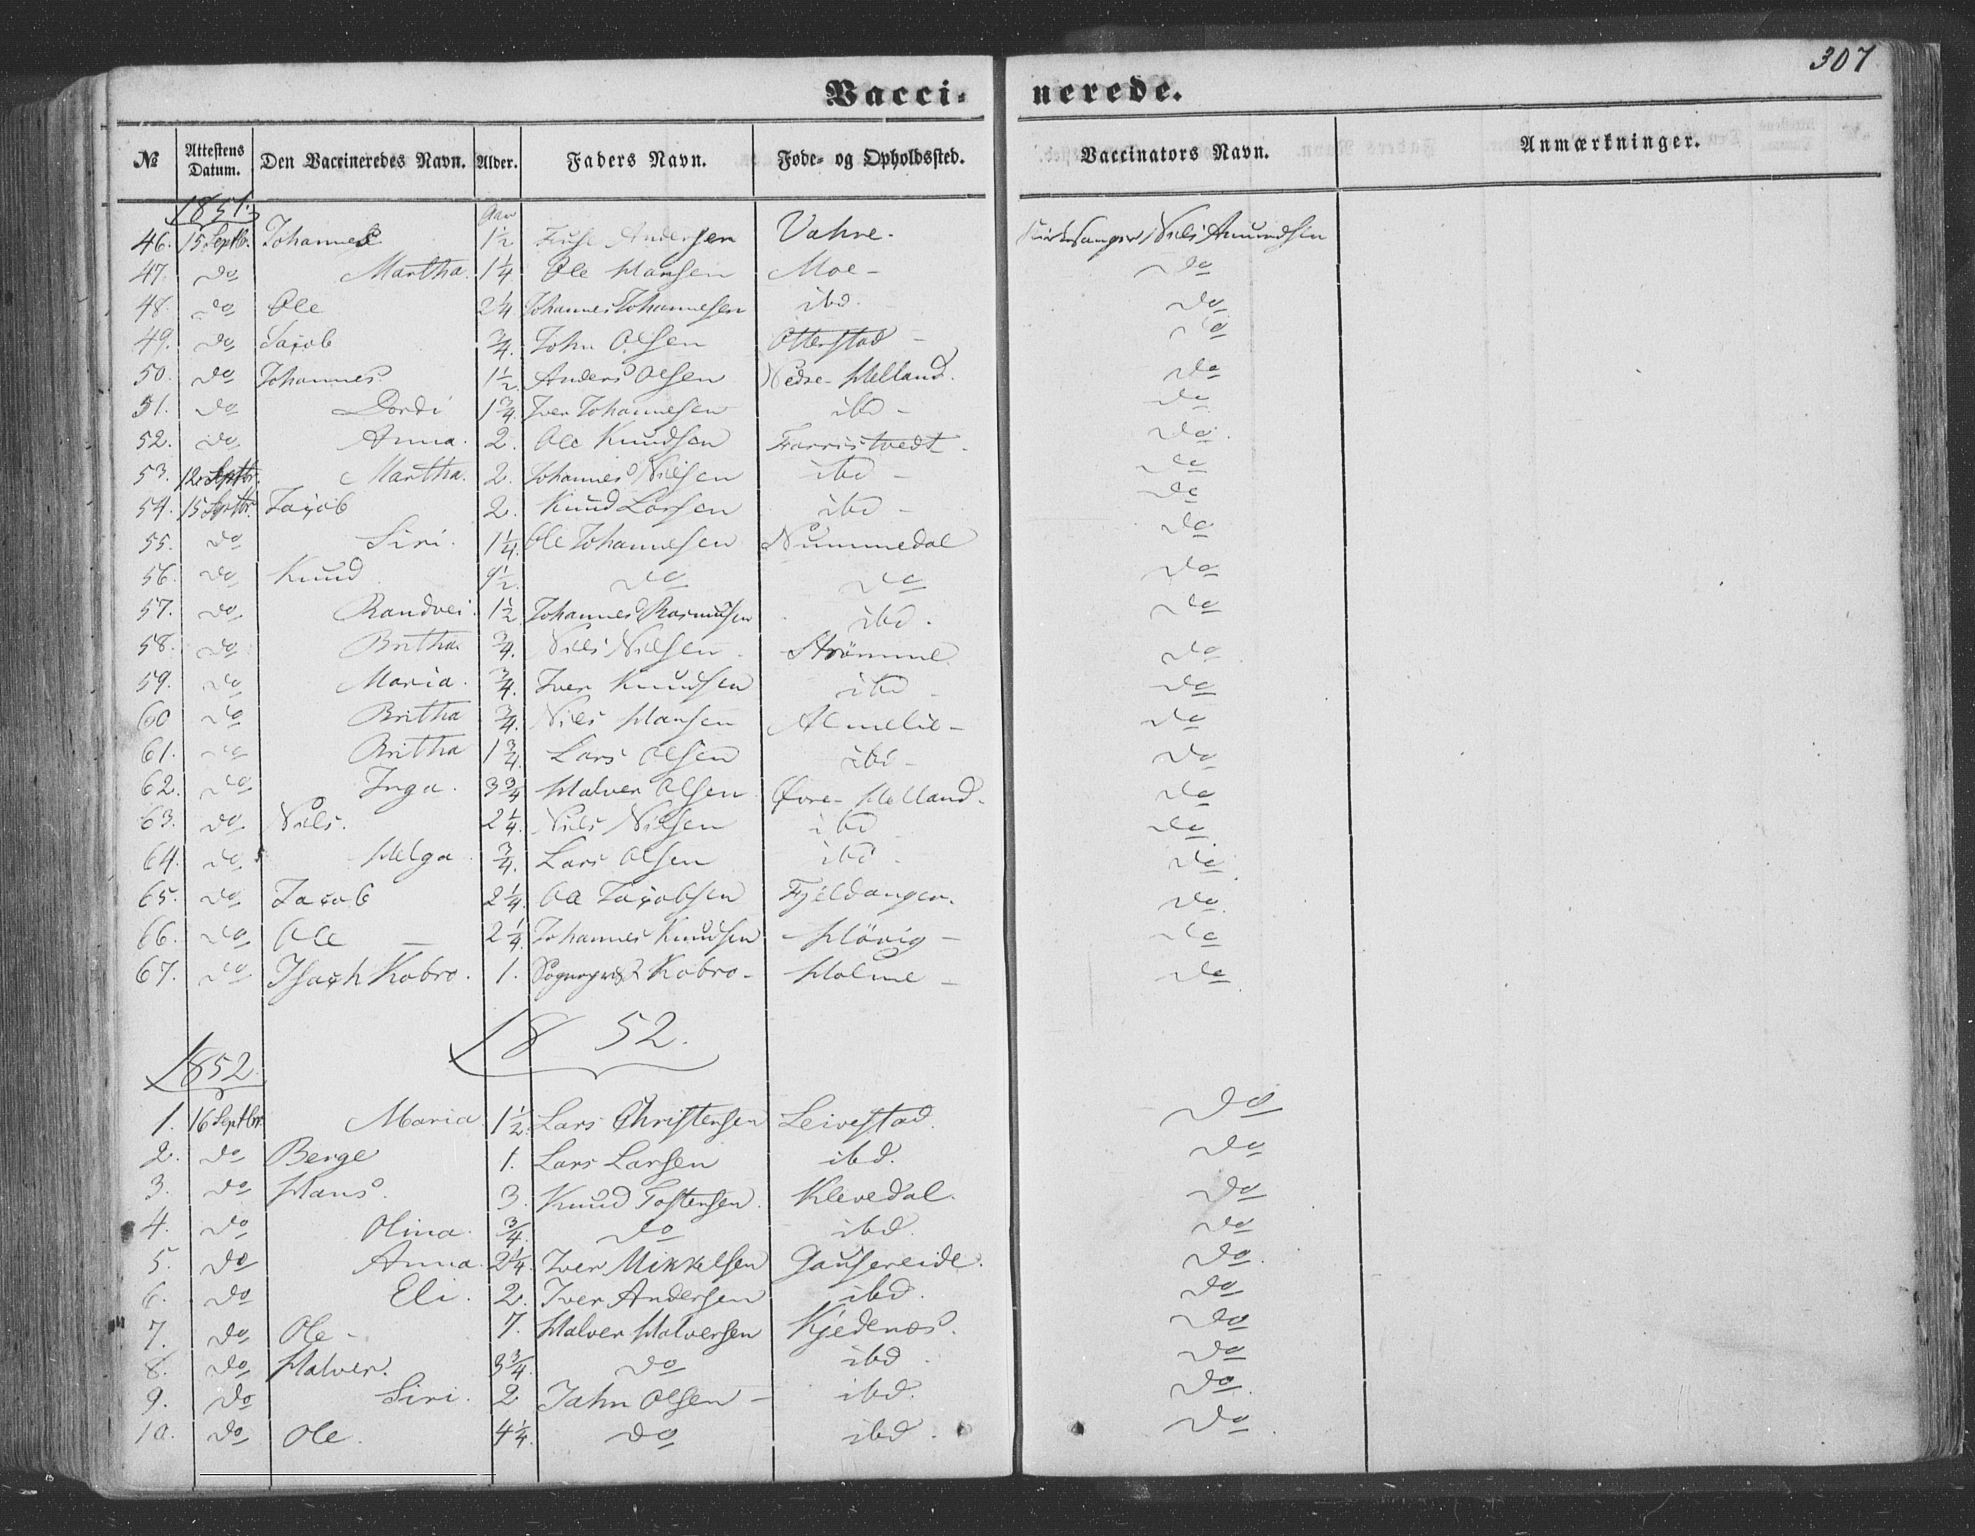 307
Vacci- nerede.
№ Attestens Datum. Den Vaccineredes Navn. Alder. Faders Navn. Føde- og Opholdssted. Vaccinators Navn. Anmærkninger.
1851.
46. 15 Septbr. Johannes 1½ Andersen Vahre. Kirkesanger Niels Amundsen
47. do Martha. 1¼ Ole Hansen Moe - do
48. do Ole 2¼ Johannes Johannesen ibd. do
49. do Jacob ¾. John Olsen Otterstad - do
50. do Johannes. 1½ Anders Olsen Nedre- Helland. do
51. do Dordi 1¾. Iver Johannesen ibd - do
52. do Anna. 2. Ole Knudsen Farristvedt. do
53. 12 Septbr. Martha. 2. Johannes Nielsen ibd - do
54. 15 Septbr. Jacob 2. Knud Larsen ibd - do
55. do Siri. 1¼. Ole Johannesen Nummedal do
56. do Knud 9½. do do do
57. do Randvei. 1½ Johannes Rasmusen ibd. do
58. do Britha. ¾. Niels Nielsen. Strømme. do
59. do Maria. ¾. Iver Knudsen ibd - do
60 do Britha ¾. Niels Hansen Almelie - do
61. do Britha 1¾. Lars Olsen ibd - do
62. do Inga. 3¾ Halver Olsen Øvre- Helland. do
63. do Niels. 2¼. Niels Nielsen ibd do
64. do Helga ¾. Lars Olsen ibd - do
65. do Jacob 2¼. Ole Jacobsen Fjeldanger. do
66. do Ole - 2¼. Johannes Knudsen Høvig - do
67. do Isach Kobro. 1. Sogneprest Kobro - Holme - do
1852.
1852.
1. 16 Septbr. Maria 1½. Lars Christensen Leivestad. do
2. do Berge 1. Lars Larsen ibd. do
3. do Hans. 3. Knud Tostensen. Klevedal. do
4. do Olina. ¾. do ibd. do
5. do Anna. 2¼. Iver Mikkelsen Gausereide. do
6. do Eli. 2. Iver Andersen ibd. do
7. do Ole - 7. Halver Halversen Kjedenæs. do
8. do Halver. 3¾. do ibd. do
9. do Siri. 2 Jahn Olsen - ibd. do
10. do Ole. 4¼. do ibd. do